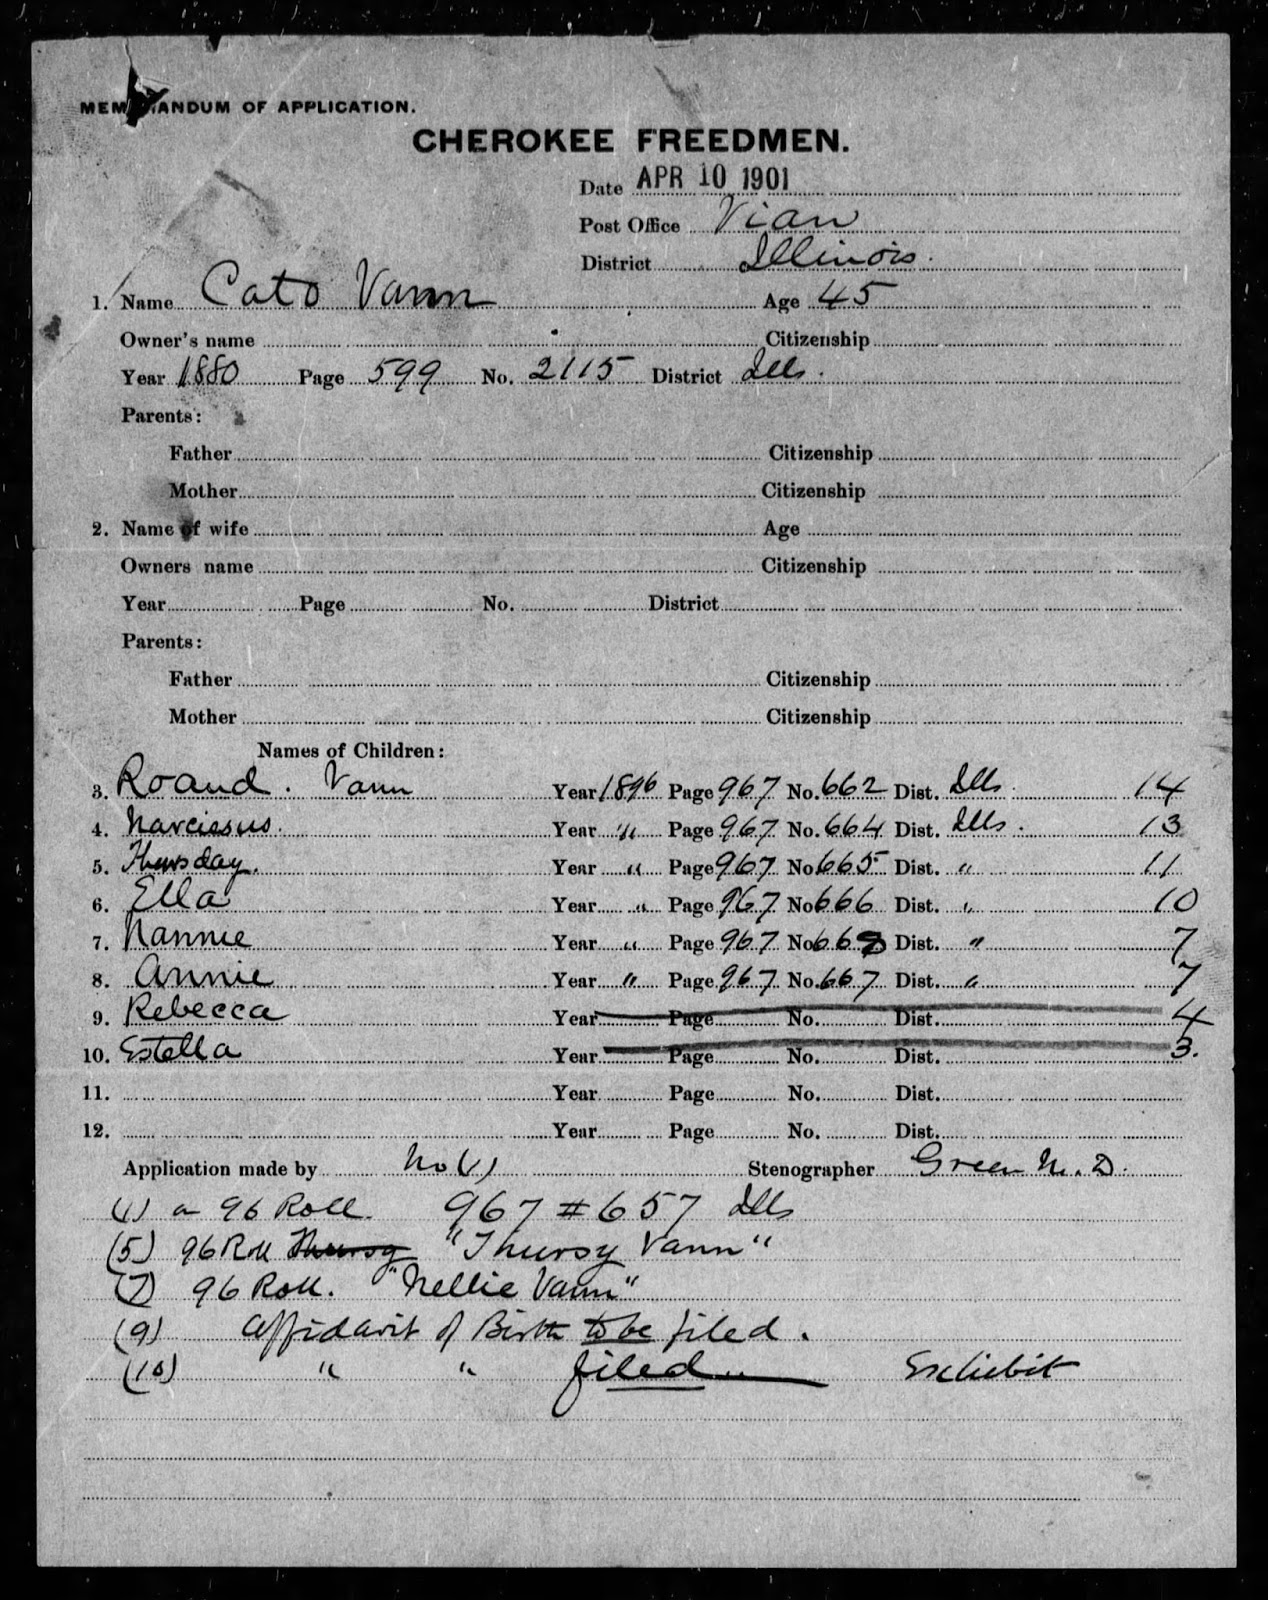 MEMORANDUM OF APPLICATION.
CHEROKEE FREEDMEN.
Date APR 10 1901
Post Office Vian
District Illinois.
1. Name Cato Vann Age 45
Owner's name Citizenship
Year 1880 Page 599 No. 2115 District Ills.
Parents:
Father Citizenship
Mother Citizenship
2. Name of wife Age
Owners name Citizenship
Year Page No. District
Parents:
Father Citizenship
Mother Citizenship
Names of Children:
3. Roand. Vann Year 1896 Page 967 No. 662 Dist. Ills. 14
4. Narcissus. Year " Page 967 No. 664 Dist. Ills. 13
5. Thursday. Year " Page 967 No. 665 Dist. " 11
6. Ella Year " Page 967 No. 666 Dist. " 10
7. Nannie Year " Page 967 No. 668 Dist. " 7
8. Annie Year " Page 967 No. 667 Dist. " 7
9. Rebecca Year Page No. Dist. 4
10. Estella Year Page No. Dist. 3.
11. Year Page No. Dist.
12. Year Page No. Dist.
Application made by No (1) Stenographer Green M. D.
(1) on 96 Roll. 967 # 657 Ills
(5) 96 Roll Thursy "Thursy Vann"
(7) 96 Roll. "Nellie Vann"
(9) Affidavit of Birth to be filed.
(10) " " filed Exhibit